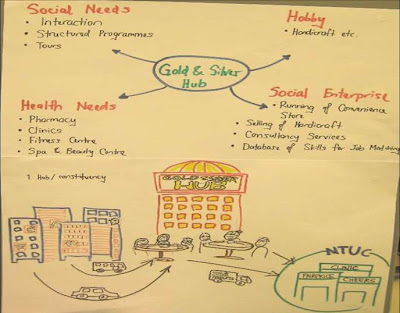 Social Needs
• Interaction
• Structured Programmes
• Tours
Hobby
• Handicraft etc.
Gold & Silver
Hub
Health Needs
• Pharmacy
• Clinics
• Fitness Centre
• Spa & Beauty Centre
Social Enterprise
• Running of Convenience
Store
• Selling of Handicraft
• Consultancy Services
• Database of Skills for Job Matching
1 Hub/constituency
HUB
NTUC
CLINIC
FAIRPRICE
CHEERS